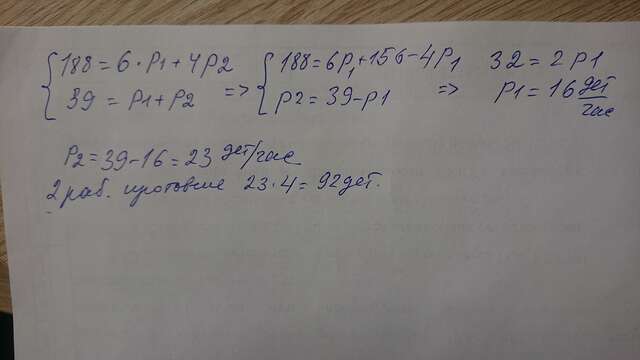 188 = 6 · P1 + 4P2 => 188 = 6P1 + 156 - 4P1 32 = 2P1
39 = P1 + P2 P2 = 39 - P1 => P1 = 16 дет/час
P2 = 39 - 16 = 23 дет/час
2 раб. изготовил 23 · 4 = 92 дет.